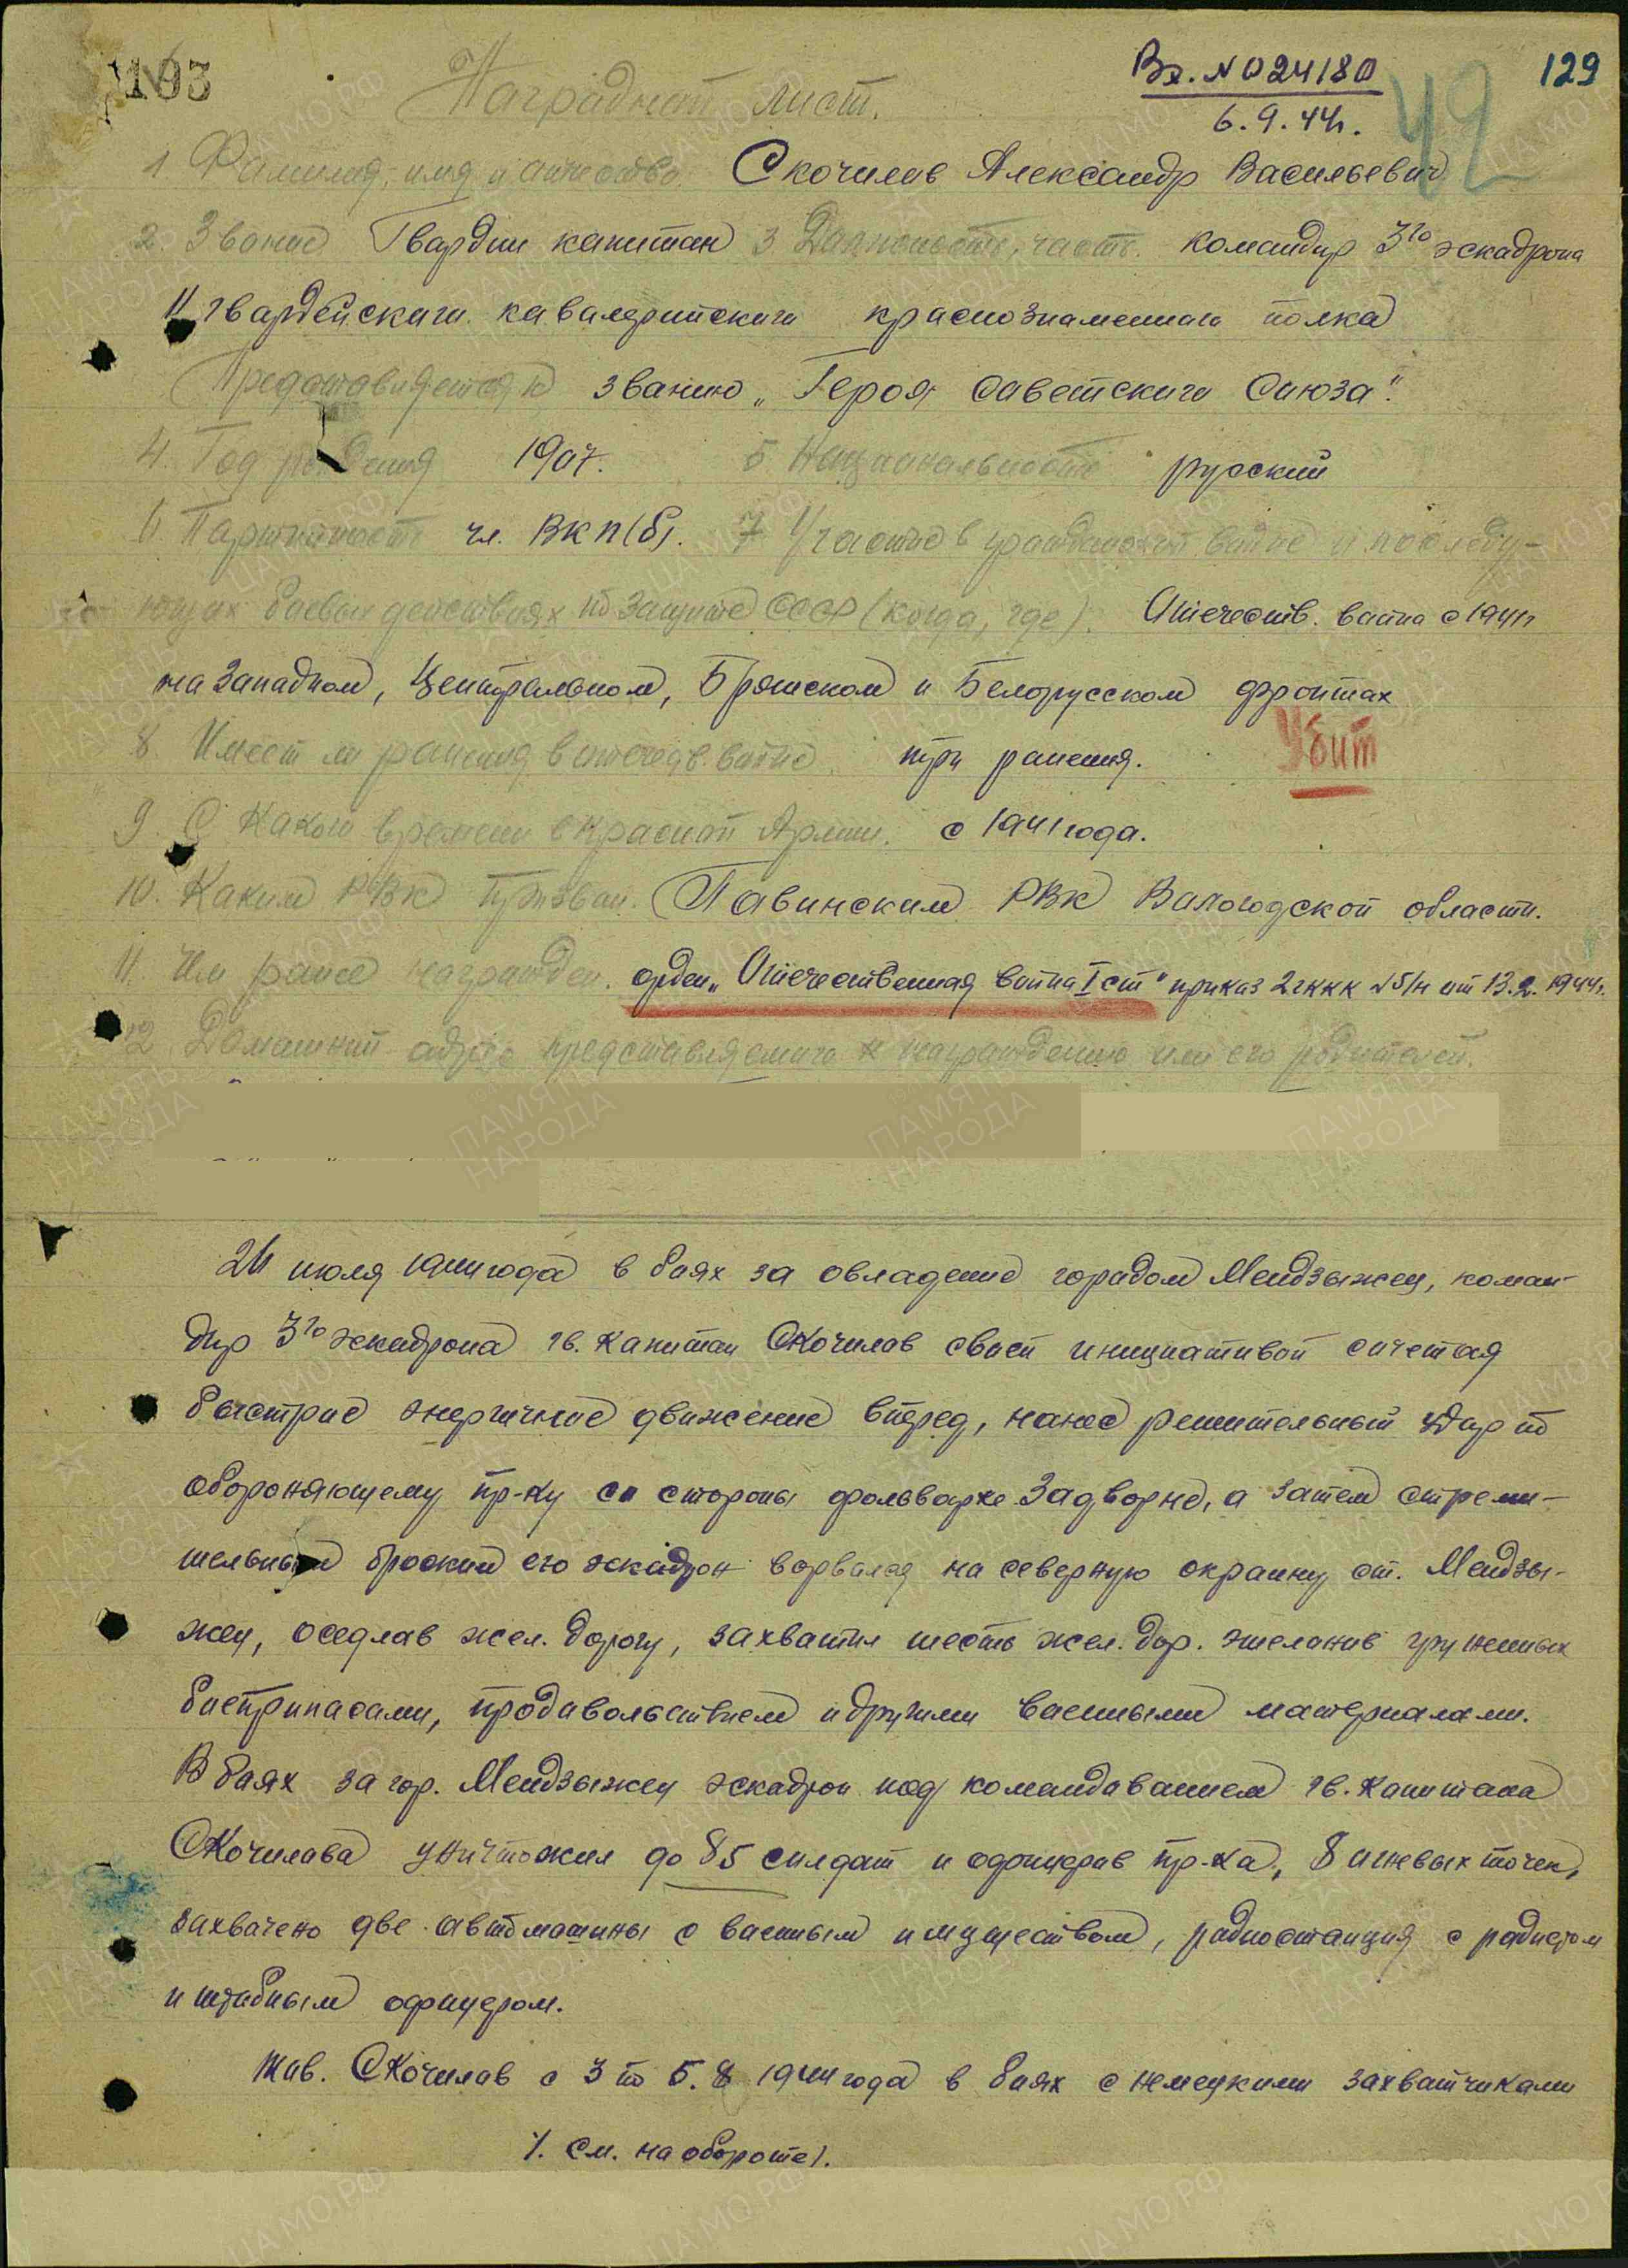 193
Вх. № 024180
129
6.9.44г.
42
Наградной лист.
1 Фамилия, имя и отчество Скочилов Александр Васильевич
2. Звание Гвардии капитан 3 Должность, часть. командир 3го эскадрона
11 гвардейского кавалерийского краснознаменного полка
Представляется к званию „Героя Советского Союза".
4. Год рождения 1907. 5 Национальность русский
6. Партийность чл. ВКП(б). 7 Участие в гражданской войне и последу-
ющих боевых действиях по защите СССР (когда, где). Отечеств. война с 1941г
на Западном, Центральном, Брянском и Белорусском фронтах
8. Имеет ли ранения в отечеств. войне. три ранения.
Убит
9. С какого времени в Красной Армии. с 1941 года.
10. Каким РВК призван. Павинским РВК Вологодской области.
11. Чем ранее награжден. орден „Отечественная война I ст" приказ 2гккк №5/н от 13.2.1944г.
12 Домашний адрес представляемого к награждению или его родителей.
24 июля 1944 года в боях за овладение городом Мендзыжец, коман-
дир 3го эскадрона гв. капитан Скочилов своей инициативой сочетая
быстрое энергичное движение вперед, нанес решительный удар по
обороняющему пр-ку со стороны фольварке Задворне, а затем стреми-
тельным броском его эскадрон ворвался на северную окраину ст. Мендзы-
жец, оседлав жел. дорогу, захватил шесть жел. дор. эшелонов груженных
боеприпасами, продовольствием и другими военными материалами.
В боях за гор. Мендзыжец эскадрон под командованием гв. капитана
Скочилова уничтожил до 85 солдат и офицеров пр-ка, 8 огневых точек,
захвачено две автомашины с военным имуществом, радиостанция с радистом
и штабным офицером.
Тов. Скочилов с 3 по 5.8 1944 года в боях с немецкими захватчиками
/. см. на обороте/.